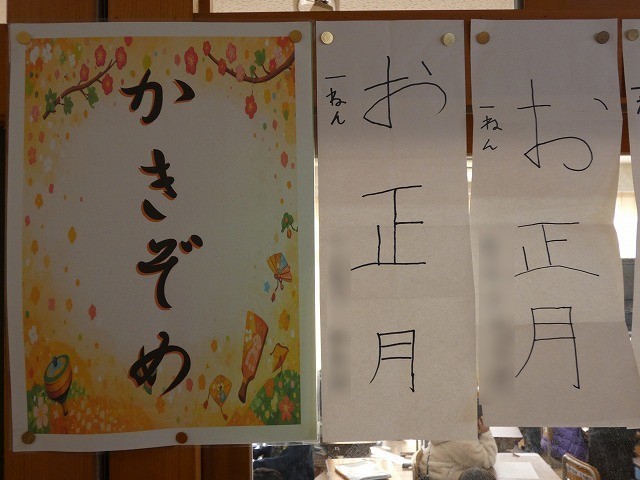 かきぞめ
お正月
一ねん
お正月
一ねん